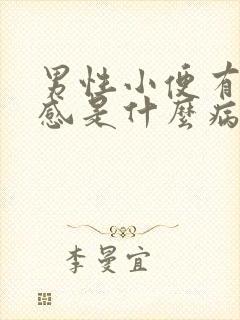 男性小便有
感是什麼病
李曼宜